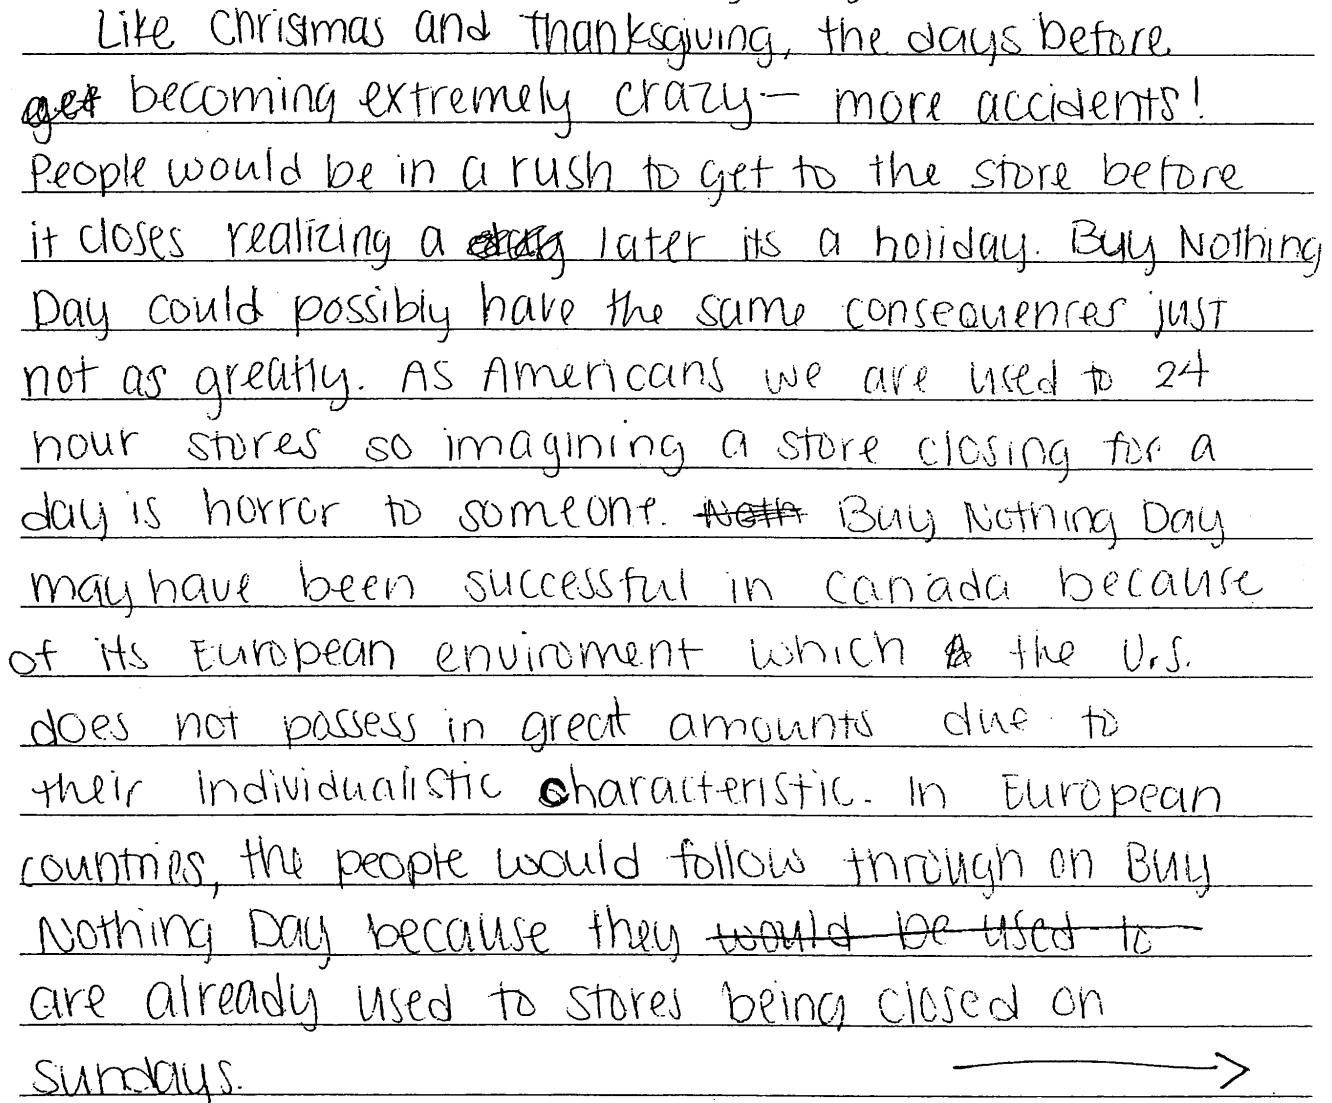 Like Christmas and Thanksgiving, the days before
get becoming extremely crazy — more accidents!
People would be in a rush to get to the store before
it closes realizing a later its a holiday. Buy Nothing
Day could possibly have the same consequences just
not as greatly. As Americans we are used to 24
hour stores so imagining a store closing for a
day is horror to someone. Noth Buy Nothing Day
may have been successful in Canada because
of its European enviroment which the U.S.
does not possess in great amounts due to
their individualistic characteristic. In European
countries, the people would follow through on Buy
Nothing Day because they would be used to
are already used to stores being closed on
sundays.